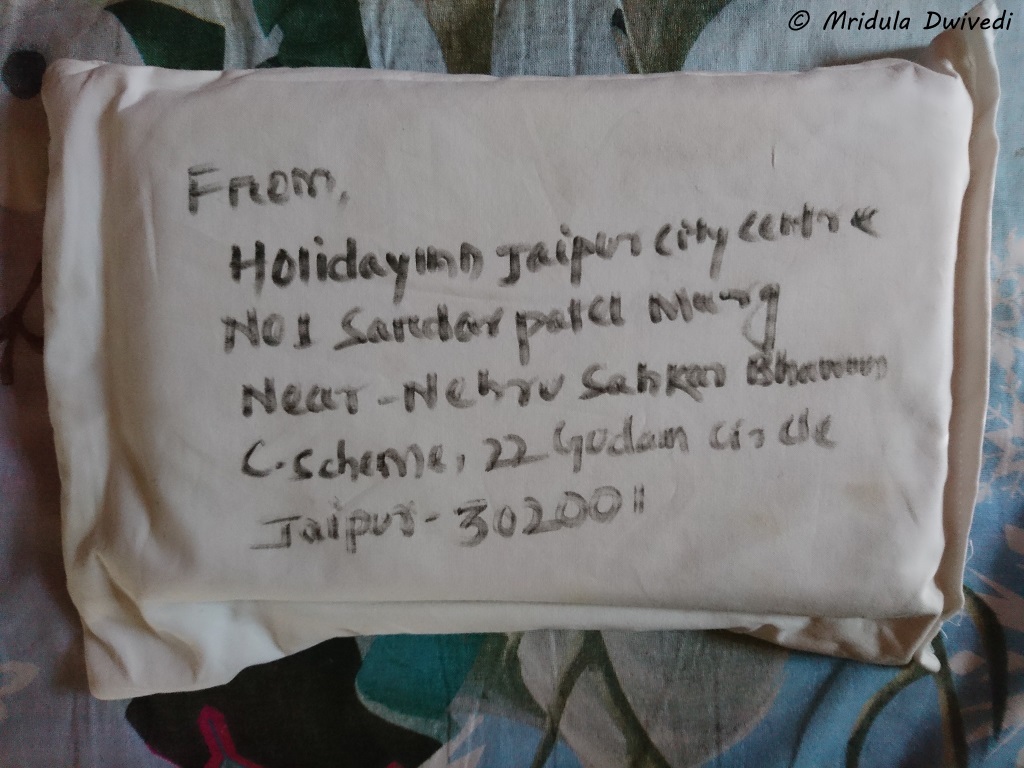 © Mridula Dwivedi
From,
Holiday inn Jaipur city centre
NO1 Sardar patel Marg
Near-Nehru Sahkar Bhawan
C-Scheme, 22 Godam circle
Jaipur-302001